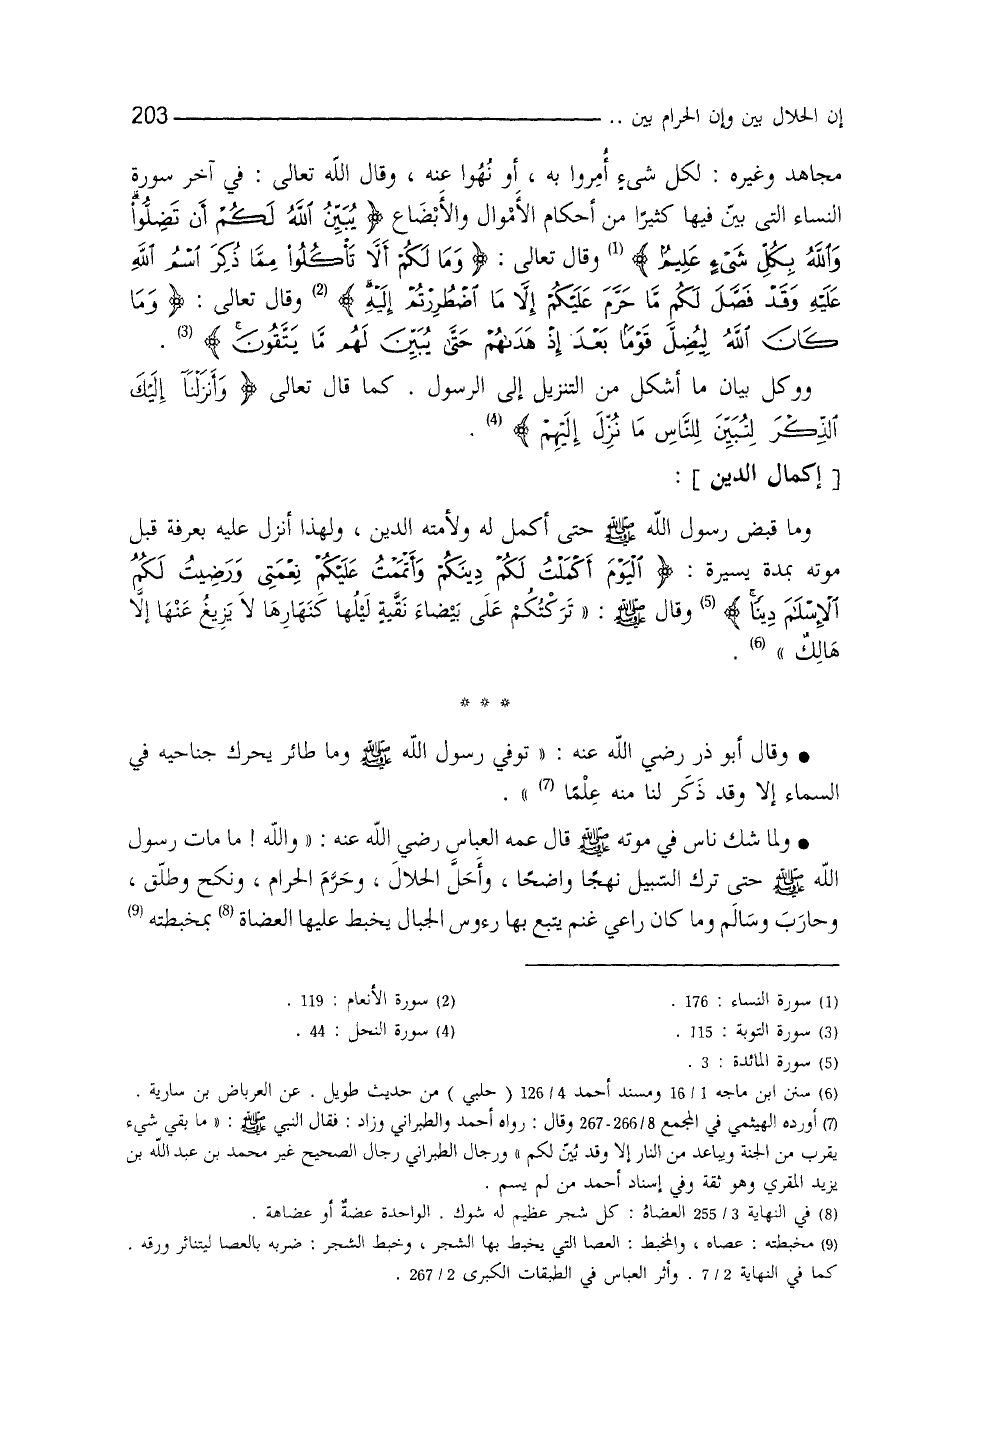 إن الحلال بين وإن الحرام بين .. 203
مجاهد وغيره : لكل شىءٍ أُمِروا به ، أو نُهُوا عنه ، وقال اللّه تعالى : في آخر سورة
النساء التى بيّن فيها كثيرًا من أحكام الأمْوال والأبْضَاع ﴿ يُبَيِّنُ ٱللَّهُ لَكُمْ أَن تَضِلُّواْ
وَٱللَّهُ بِكُلِّ شَىْءٍ عَلِيمٌ ﴾ (1) وقال تعالى : ﴿ وَمَا لَكُمْ أَلَّا تَأْكُلُواْ مِمَّا ذُكِرَ ٱسْمُ ٱللَّهِ
عَلَيْهِ وَقَدْ فَصَّلَ لَكُم مَّا حَرَّمَ عَلَيْكُمْ إِلَّا مَا ٱضْطُرِرْتُمْ إِلَيْهِ ﴾ (2) وقال تعالى : ﴿ وَمَا
كَانَ ٱللَّهُ لِيُضِلَّ قَوْمًا بَعْدَ إِذْ هَدَىٰهُمْ حَتَّىٰ يُبَيِّنَ لَهُم مَّا يَتَّقُونَ ﴾ (3) .
ووكل بيان ما أشكل من التنزيل إلى الرسول . كما قال تعالى ﴿ وَأَنزَلْنَآ إِلَيْكَ
ٱلذِّكْرَ لِتُبَيِّنَ لِلنَّاسِ مَا نُزِّلَ إِلَيْهِمْ ﴾ (4) .
[ إكمال الدين ] :
وما قبض رسول اللّه ﷺ حتى أكمل له ولأمته الدين ، ولهذا أنزل عليه بعرفة قبل
موته بمدة يسيرة : ﴿ ٱلْيَوْمَ أَكْمَلْتُ لَكُمْ دِينَكُمْ وَأَتْمَمْتُ عَلَيْكُمْ نِعْمَتِى وَرَضِيتُ لَكُمُ
ٱلْإِسْلَٰمَ دِينًا ﴾ (5) وقال ﷺ : « تَرَكْتُكُمْ عَلَى بَيْضَاءَ نَقَّيةٍ لَيْلُها كَنَهَارِهَا لاَ يَزِيغُ عَنْهَا إلَّا
هَالِكٌ » (6) .
* * *
● وقال أبو ذر رضي اللّه عنه : « توفي رسول اللّه ﷺ وما طائر يحرك جناحيه في
السماء إلا وقد ذَكَر لنا منه عِلْمًا (7) » .
● ولما شك ناس في موته ﷺ قال عمه العباس رضي اللّه عنه : « واللّه ! ما مات رسول
اللّه ﷺ حتى ترك السّبيل نهجًا واضحًا ، وأَحَلَّ الحلالَ ، وحَرَّمَ الحرام ، ونكح وطلّق ،
وحارَبَ وسَالَم وما كان راعي غنم يتبع بها رءوس الجبال يخبط عليها العضاة (8) بمخبطته (9)
(1) سورة النساء : 176 . (2) سورة الأنعام : 119 .
(3) سورة التوبة : 115 . (4) سورة النحل : 44 .
(5) سورة المائدة : 3 .
(6) سنن ابن ماجه 1 / 16 ومسند أحمد 4 / 126 ( حلبي ) من حديث طويل . عن العرباض بن سارية .
(7) أورده الهيثمي في المجمع 8 / 266-267 وقال : رواه أحمد والطبراني وزاد : فقال النبي ﷺ : « ما بقي شيء
يقرب من الجنة ويباعد من النار إلا وقد بُيّن لكم » ورجال الطبراني رجال الصحيح غير محمد بن عبد اللّه بن
يزيد المقري وهو ثقة وفي إسناد أحمد من لم يسم .
(8) في النهاية 3 / 255 العضاهُ : كل شجر عظيم له شوك . الواحدة عضةٌ أو عضاهة .
(9) مخبطته : عصاه ، والمخبط : العصا التي يخبط بها الشجر ، وخبط الشجر : ضربه بالعصا ليتناثر ورقه .
كما في النهاية 2 / 7 . وأثر العباس في الطبقات الكبرى 2 / 267 .